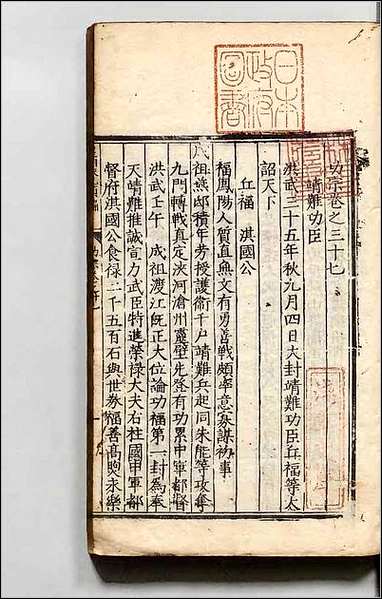 日本
政府
圖書
功宗卷之三十七
靖難功臣
洪武三十五年秋九月四日大封靖難功臣丘福等太
詔天下
丘福 淇國公
福鳳陽人質直無文有勇善戰頗率意寡謀初事
成祖燕邸積年勞授護衞千戶靖難兵起同朱能等攻奪
九門轉戰真定浹河滄州靈璧先登有功累中軍都督
洪武壬午 成祖渡江旣正大位論功福第一封爲奉
天靖難推誠宣力武臣特進榮禄大夫右柱國中軍都
督府淇國公食禄二千五百石與世券福善高煦永樂